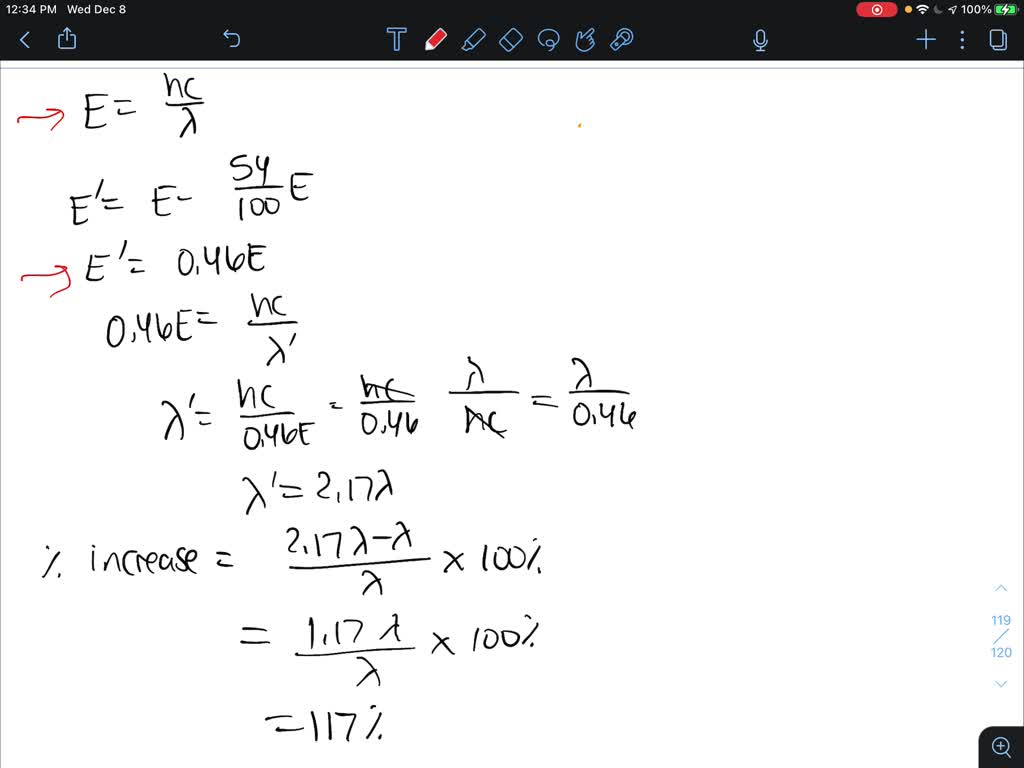 12:34 PM Wed Dec 8 100%
E = hc/λ
E' = E - 54/100 E
E' = 0.46E
0.46E = hc/λ'
λ' = hc/0.46E = hc/0.46 λ/hc = λ/0.46
λ' = 2.17λ
% increase = 2.17λ-λ/λ x 100%
= 1.17λ/λ x 100%
= 117%
119
/
120